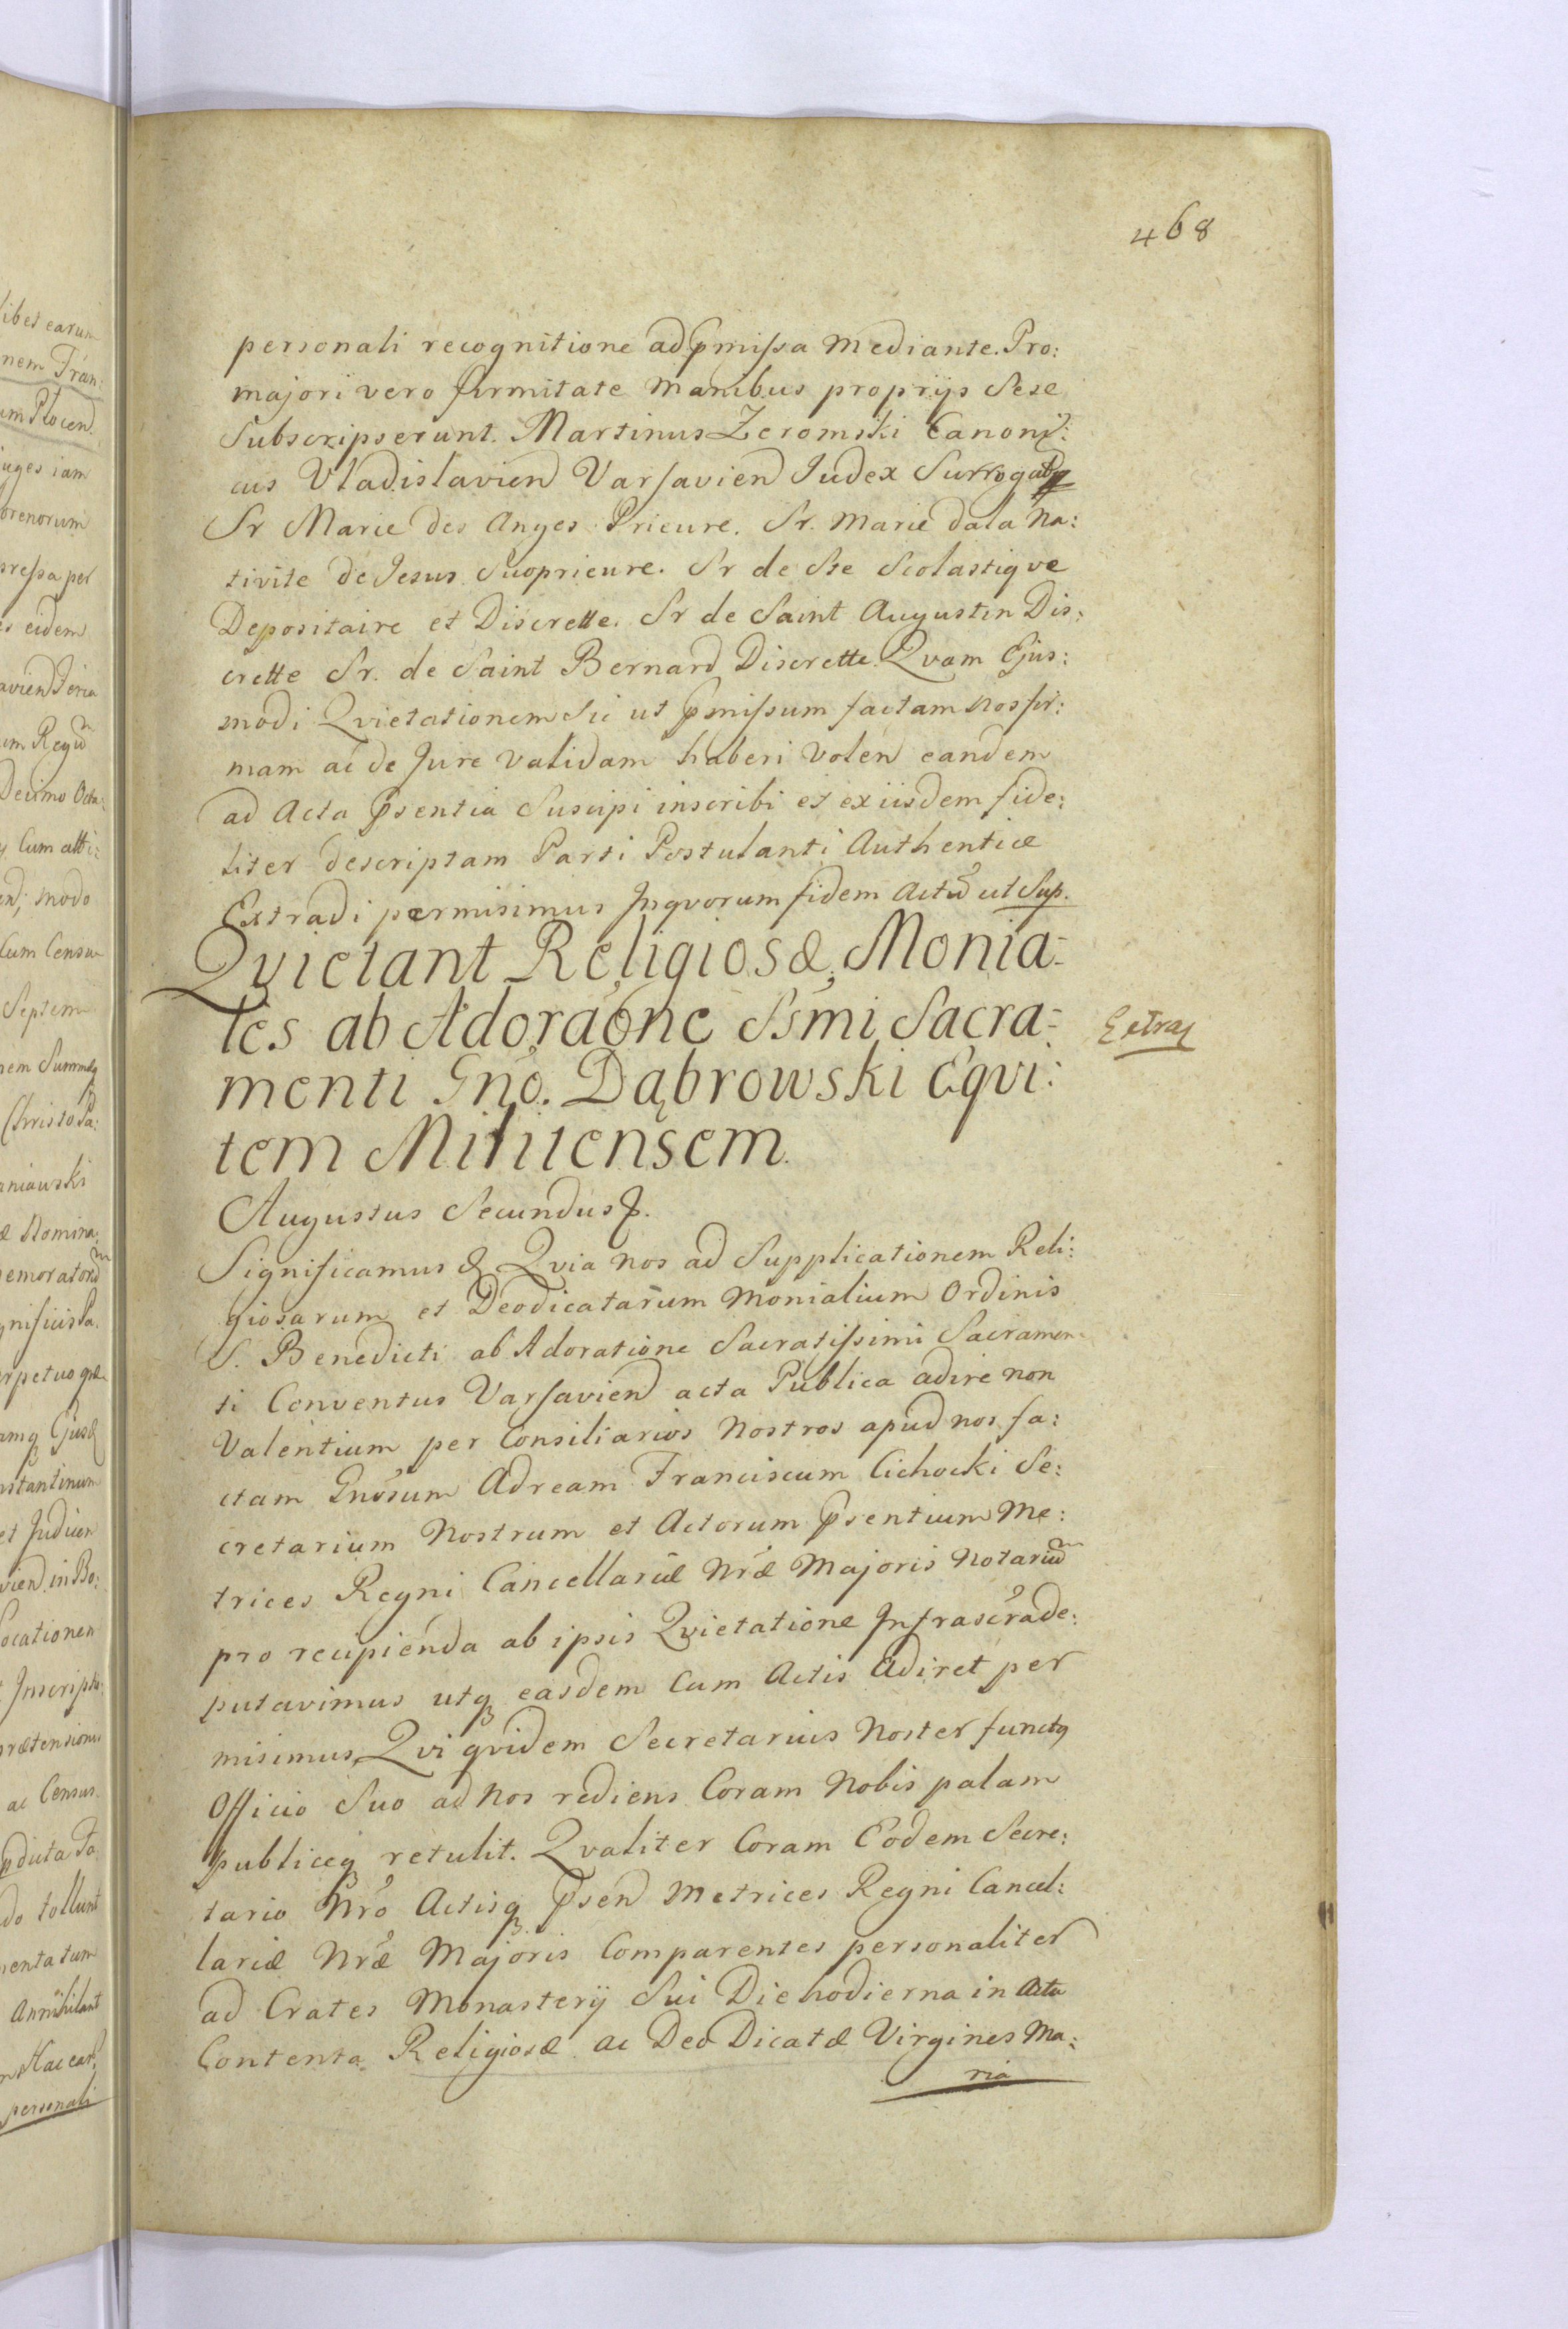 468
personali recognitione ad pmissa mediante. Pro:
majori vero firmitate manibus proprijs Sese
Subscripserunt. Martinus Zeromski Canoni:
cus Vladislavien Varsavien Judex Surrogatq
Sr Marie des Anges Prieure. Sr. Marie dala Na:
tivite de Jesus Suoprieure. Sr de Ste Scolastiqve
Depositaire et Discrette. Sr de Saint Augustin Dis:
crette Sr. de Saint Bernard Discrette. Qvam Ejus:
modi Qvietationem Sic ut pmissum factam nos fir:
mam ac de Jure validam haberi volen eandem
ad Acta psentia Suscipi inscribi et ex iisdem fide:
liter descriptam Parti Postulanti Authenticæ
Extradi permisimus Jnqvorum fidem Actũ ut Sup.
Qvietant Religiosæ Monia-
les ab Adoraõne Ssmi Sacra-
menti Gnõ. Dąbrowski Eqvi:
tem Militensem.
Augustus Secundus &.
Significamus & Qvia nos ad Supplicationem Reli:
giosarum et Deodicatarum Monialium Ordinis
S. Benedicti ab Adoratione Sacratissimi Sacramen-
ti Conventus Varsavien acta Publica adire non
Valentium per Consiliarios Nostros apud nos fa:
ctam Gnõsum Adream Franciscum Cichocki Se:
cretarium Nostrum et Actorum psentium Me:
trices Regni Cancellariæ Nræ Majoris Notariũ
pro recipienda ab ipsis Qvietatione Jnfrascra de:
putavimus utq easdem Cum Actis Adiret per
misimus, Qvi qvidem Secretarius Noster functq
Officio Suo ad Nos rediens Coram Nobis palam
publiceq retulit. Qvaliter Coram Eodem Secre:
tario Nrõ Actisq psen Metrices Regni Cancel:
lariæ Nræ Majoris Comparentes personaliter
ad Crates Monasterij Sui Die hodierna in Acta
Contenta Religiosæ ac Deo Dicatæ Virgines Ma:
ria